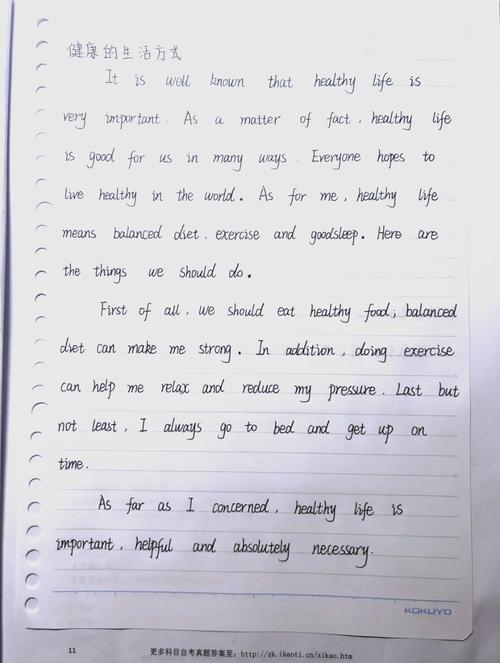 健康的生活方式
It is well known that healthy life is
very important. As a matter of fact, healthy life
is good for us in many ways. Everyone hopes to
live healthy in the world. As for me, healthy life
means balanced diet, exercise and goodsleep. Here are
the things we should do.
First of all, we should eat healthy food; balanced
diet can make me strong. In addition, doing exercise
can help me relax and reduce my pressure. Last but
not least, I always go to bed and get up on
time.
As far as I concerned, healthy life is
important, helpful and absolutely necessary.
KOKUYO
11 更多科目自考真题答案至:http://zk.ikaoti.cn/zikao.htm